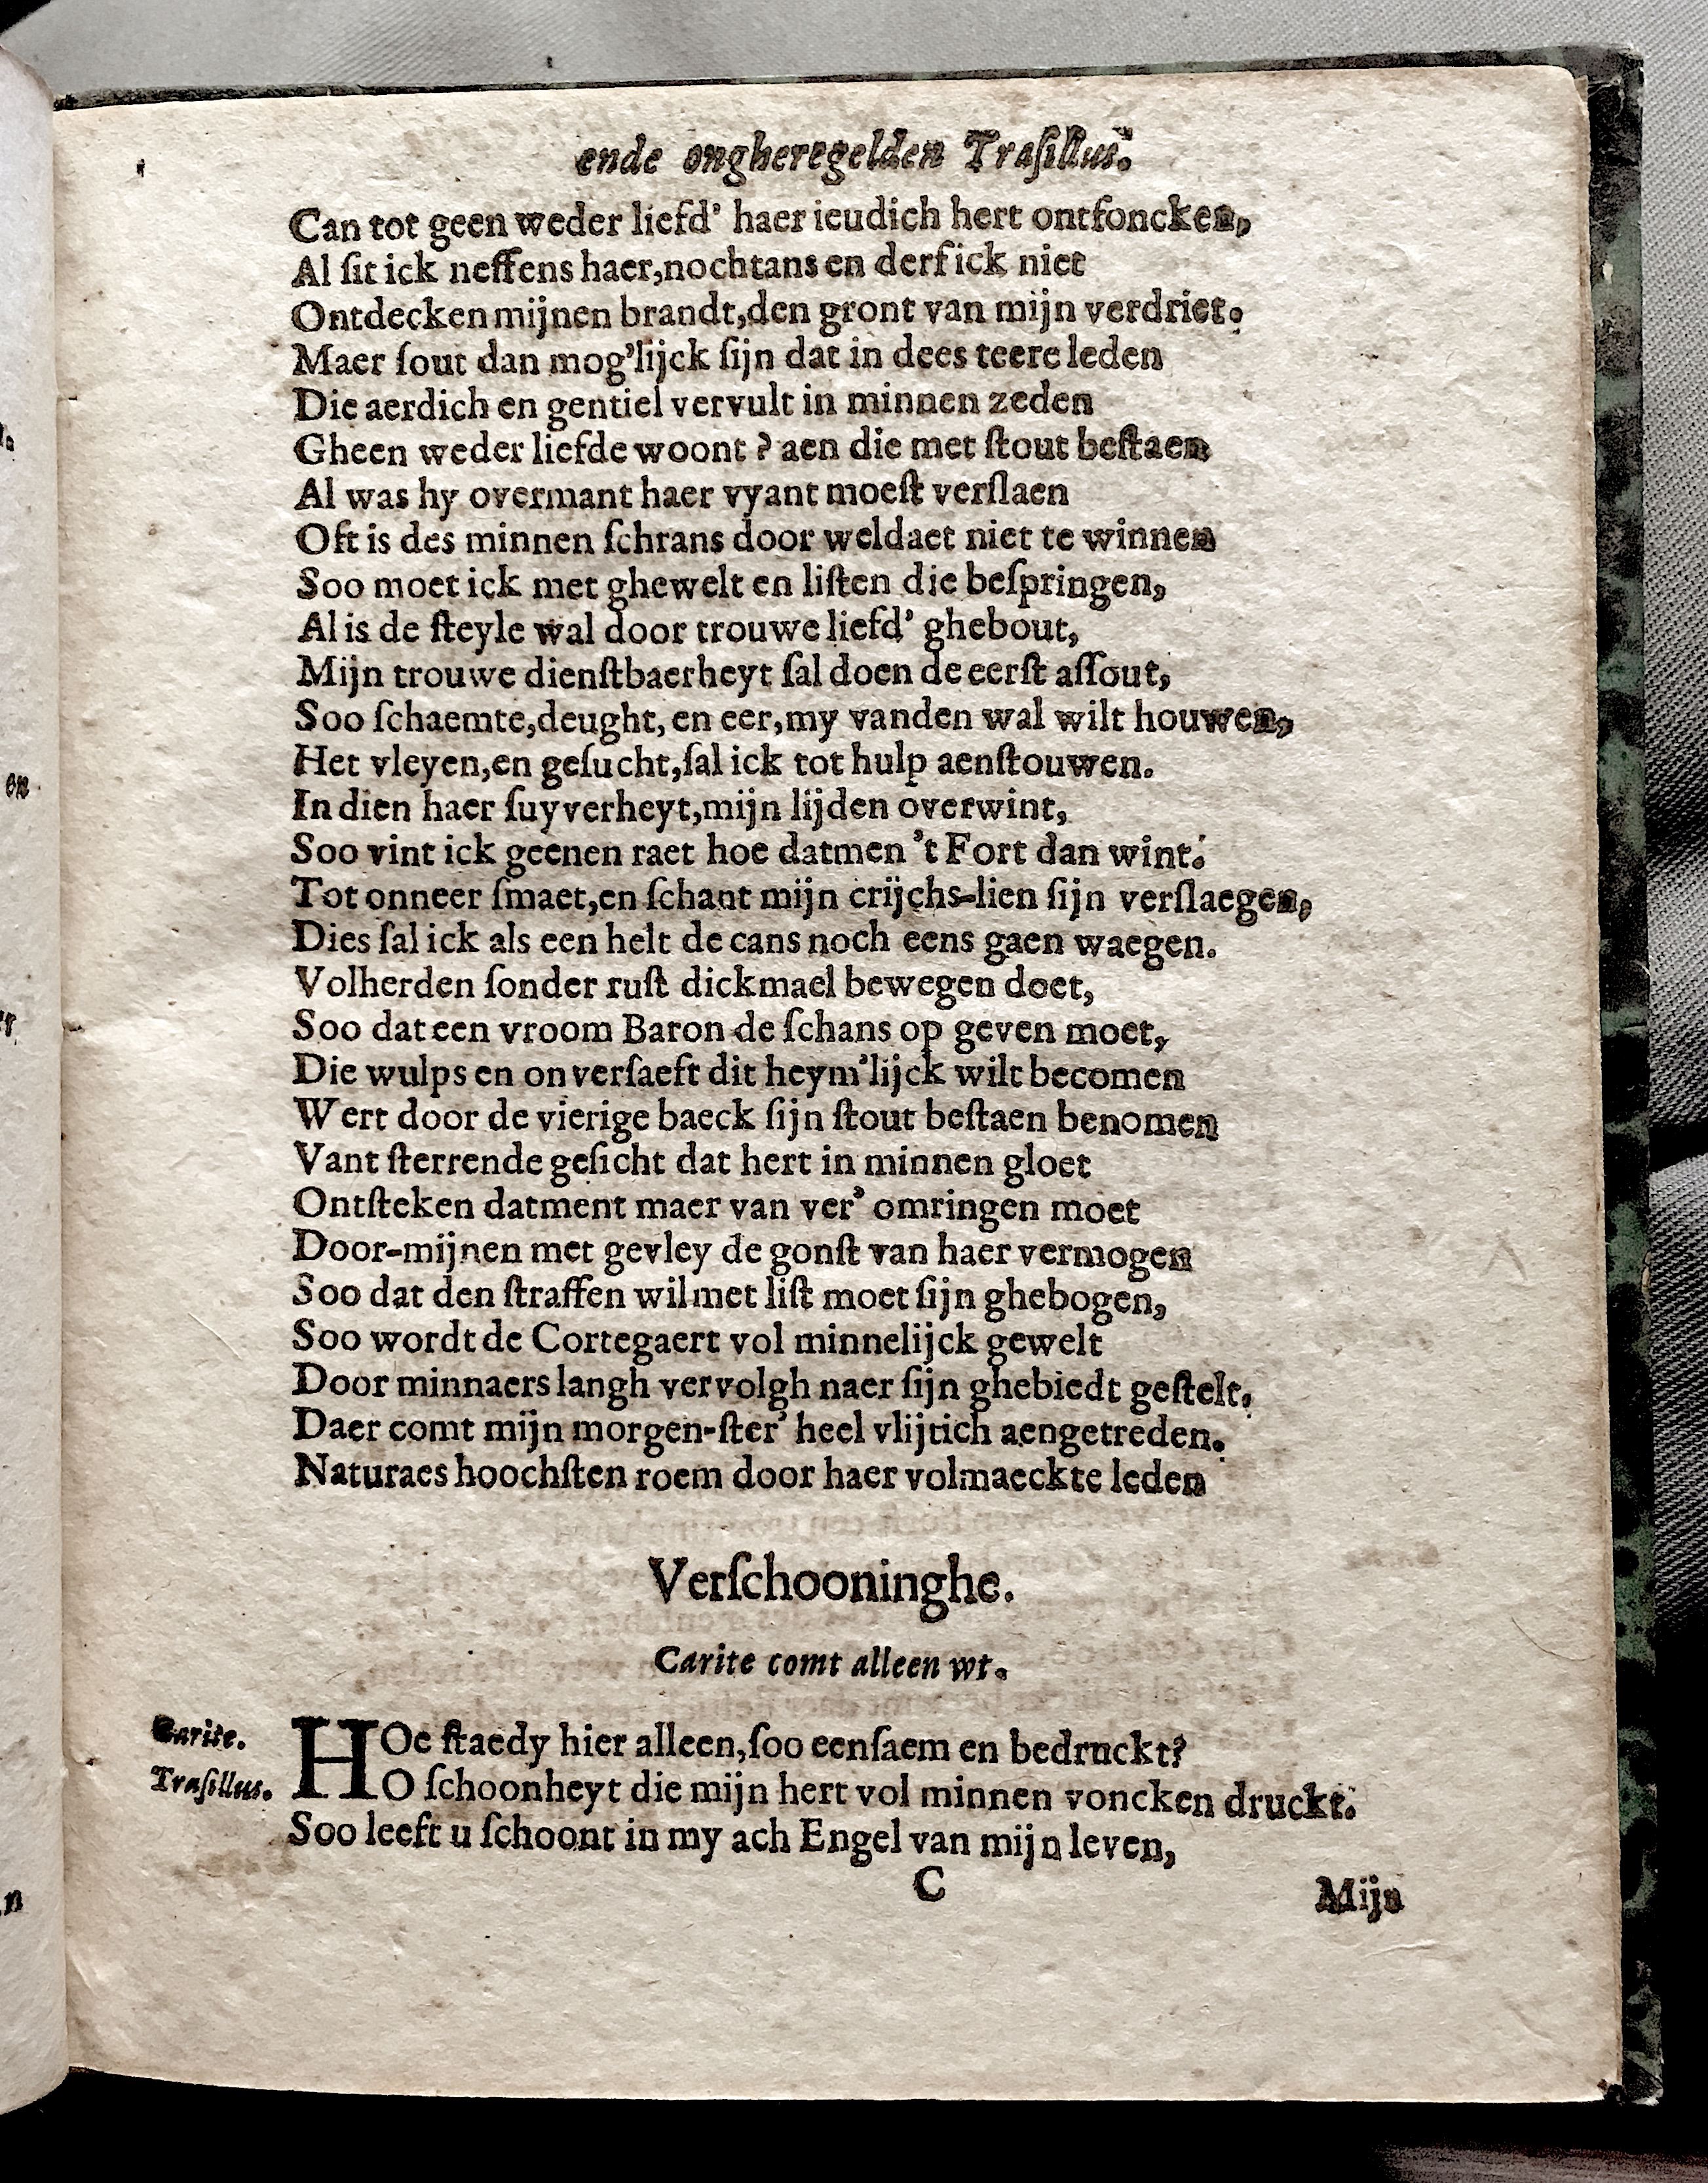 ende ongheregelden Trasillus.
Can tot geen weder liefd' haer ieudich hert ontfoncken,
Al sit ick neffens haer, nochtans en derf ick niet
Ontdecken mijnen brandt, den gront van mijn verdriet.
Maer sout dan mog'lijck sijn dat in dees teere leden
Die aerdich en gentiel vervult in minnen zeden
Gheen weder liefde woont? aen die met stout bestaen
Al was hy overmant haer vyant moest verslaen
Oft is des minnen schrans door weldaet niet te winnen
Soo moet ick met ghewelt en listen die bespringen,
Al is de steyle wal door trouwe liefd' ghebout,
Mijn trouwe dienstbaerheyt sal doen de eerst assout,
Soo schaemte, deught, en eer, my vanden wal wilt houwen,
Het vleyen, en gesucht, sal ick tot hulp aenstouwen.
In dien haer suyverheyt, mijn lijden overwint,
Soo vint ick geenen raet hoe datmen 't Fort dan wint.
Tot onneer smaet, en schant mijn crijchs-lien sijn verslaegen,
Dies sal ick als een helt de cans noch eens gaen waegen.
Volherden sonder rust dickmael bewegen doet,
Soo dat een vroom Baron de schans op geven moet,
Die wulps en onversaeft dit heym'lijck wilt becomen
Wert door de vierige baeck sijn stout bestaen benomen
Vant sterrende gesicht dat hert in minnen gloet
Ontsteken datment maer van ver' omringen moet
Door-mijnen met gevley de gonst van haer vermogen
Soo dat den straffen wil met list moet sijn ghebogen,
Soo wordt de Cortegaert vol minnelijck gewelt
Door minnaers langh vervolgh naer sijn ghebiedt gestelt.
Daer comt mijn morgen-ster' heel vlijtich aengetreden.
Naturaes hoochsten roem door haer volmaeckte leden
Verschooninghe.
Carite comt alleen wt.
Carite. HOe staedy hier alleen, soo eensaem en bedruckt?
Trasillus. O schoonheyt die mijn hert vol minnen voncken druckt.
Soo leeft u schoont in my ach Engel van mijn leven,
C
Mijn